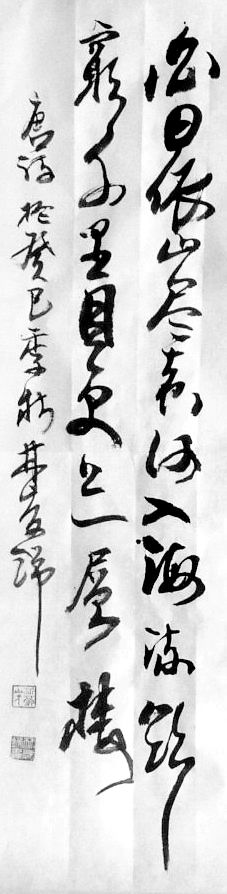 白日依山尽黄河入海流欲
穷千里目更上一层楼
唐诗于癸巳季秋